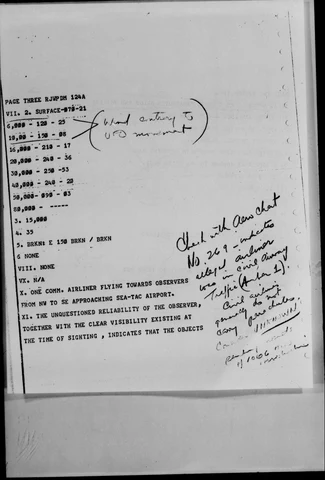 PAGE THREE RJWPDM 124A
VII. 2. SURFACE-070-21
6,000 - 120 - 25
10,00 - 150 - 08
16,000 - 210 - 17
20,000 - 240 - 36
30,000 - 250 -53
40,000 - 240 - 20
50,000- 090 - 03
80,000 - -----
3. 15,000
4. 35
5. BRKN: E 150 BRKN / BRKN
6 NONE
VIII. NONE
VX. N/A
X. ONE COMM. AIRLINER FLYING TOWARDS OBSERVERS
FROM NW TO SE APPROACHING SEA-TAC AIRPORT.
XI. THE UNQUESTIONED RELIABILITY OF THE OBSERVER,
TOGETHER WITH THE CLEAR VISIBILITY EXISTING AT
THE TIME OF SIGHTING , INDICATES THAT THE OBJECTS
Wind contrary to
UFO movement
Check with Aero Chart
No. 269 - indicates
alleged airliner
was in civil airway
Traffic (Amber 1).
Civil airlines
generally do not
carry parachutes.
UNKNOWN